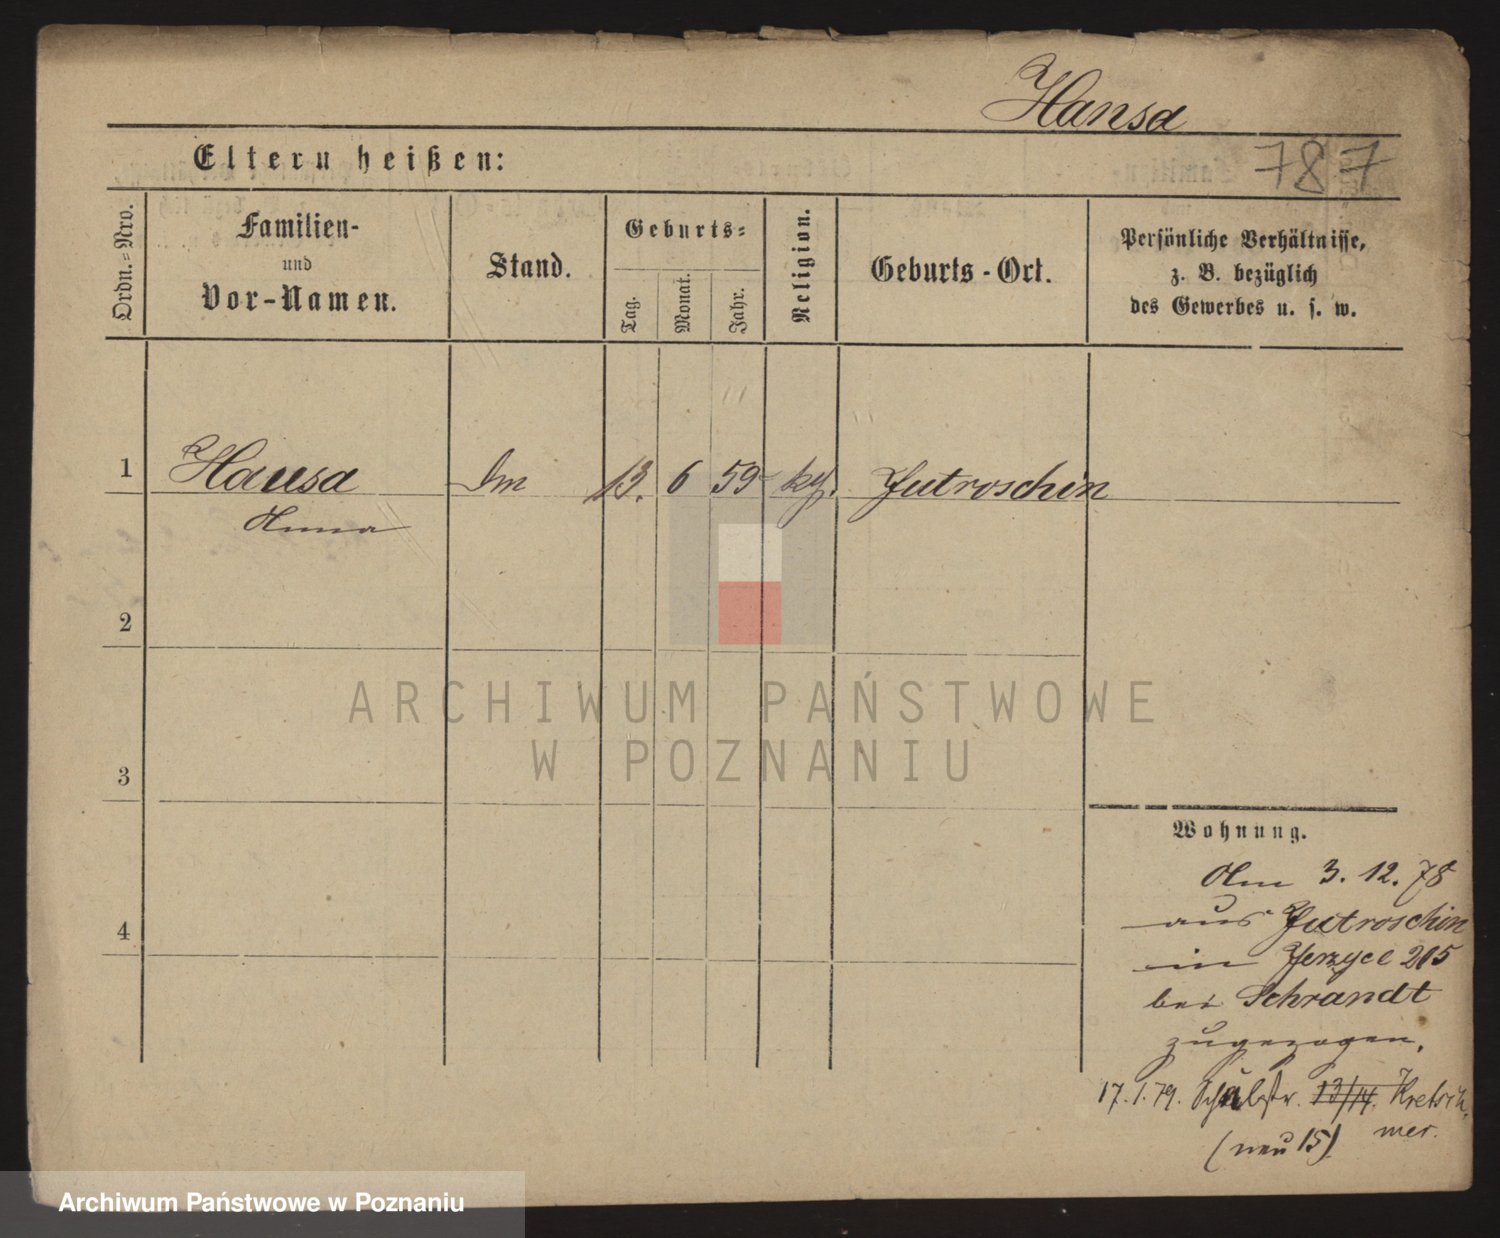 Hansa
787
Eltern heißen:
Ordn.-Nro.
Familien-
und
Vor-Namen.
Stand.
Geburts-
Tag.
Monat.
Jahr.
Religion.
Geburts-Ort.
Persönliche Verhältnisse,
z. B. bezüglich
des Gewerbes u. s. w.
1 Hansa 13. 6 59 Jutroschin
Anna
2
3
4
ARCHIWUM PAŃSTWOWE
W POZNANIU
Wohnung.
Am 3. 12. 78
aus Jutroschin
in Jerzyce 205
bei Schrandt
zugezogen.
17.1.79. 13/14. Kretsch
mer.
(neu 15)
Archiwum Państwowe w Poznaniu